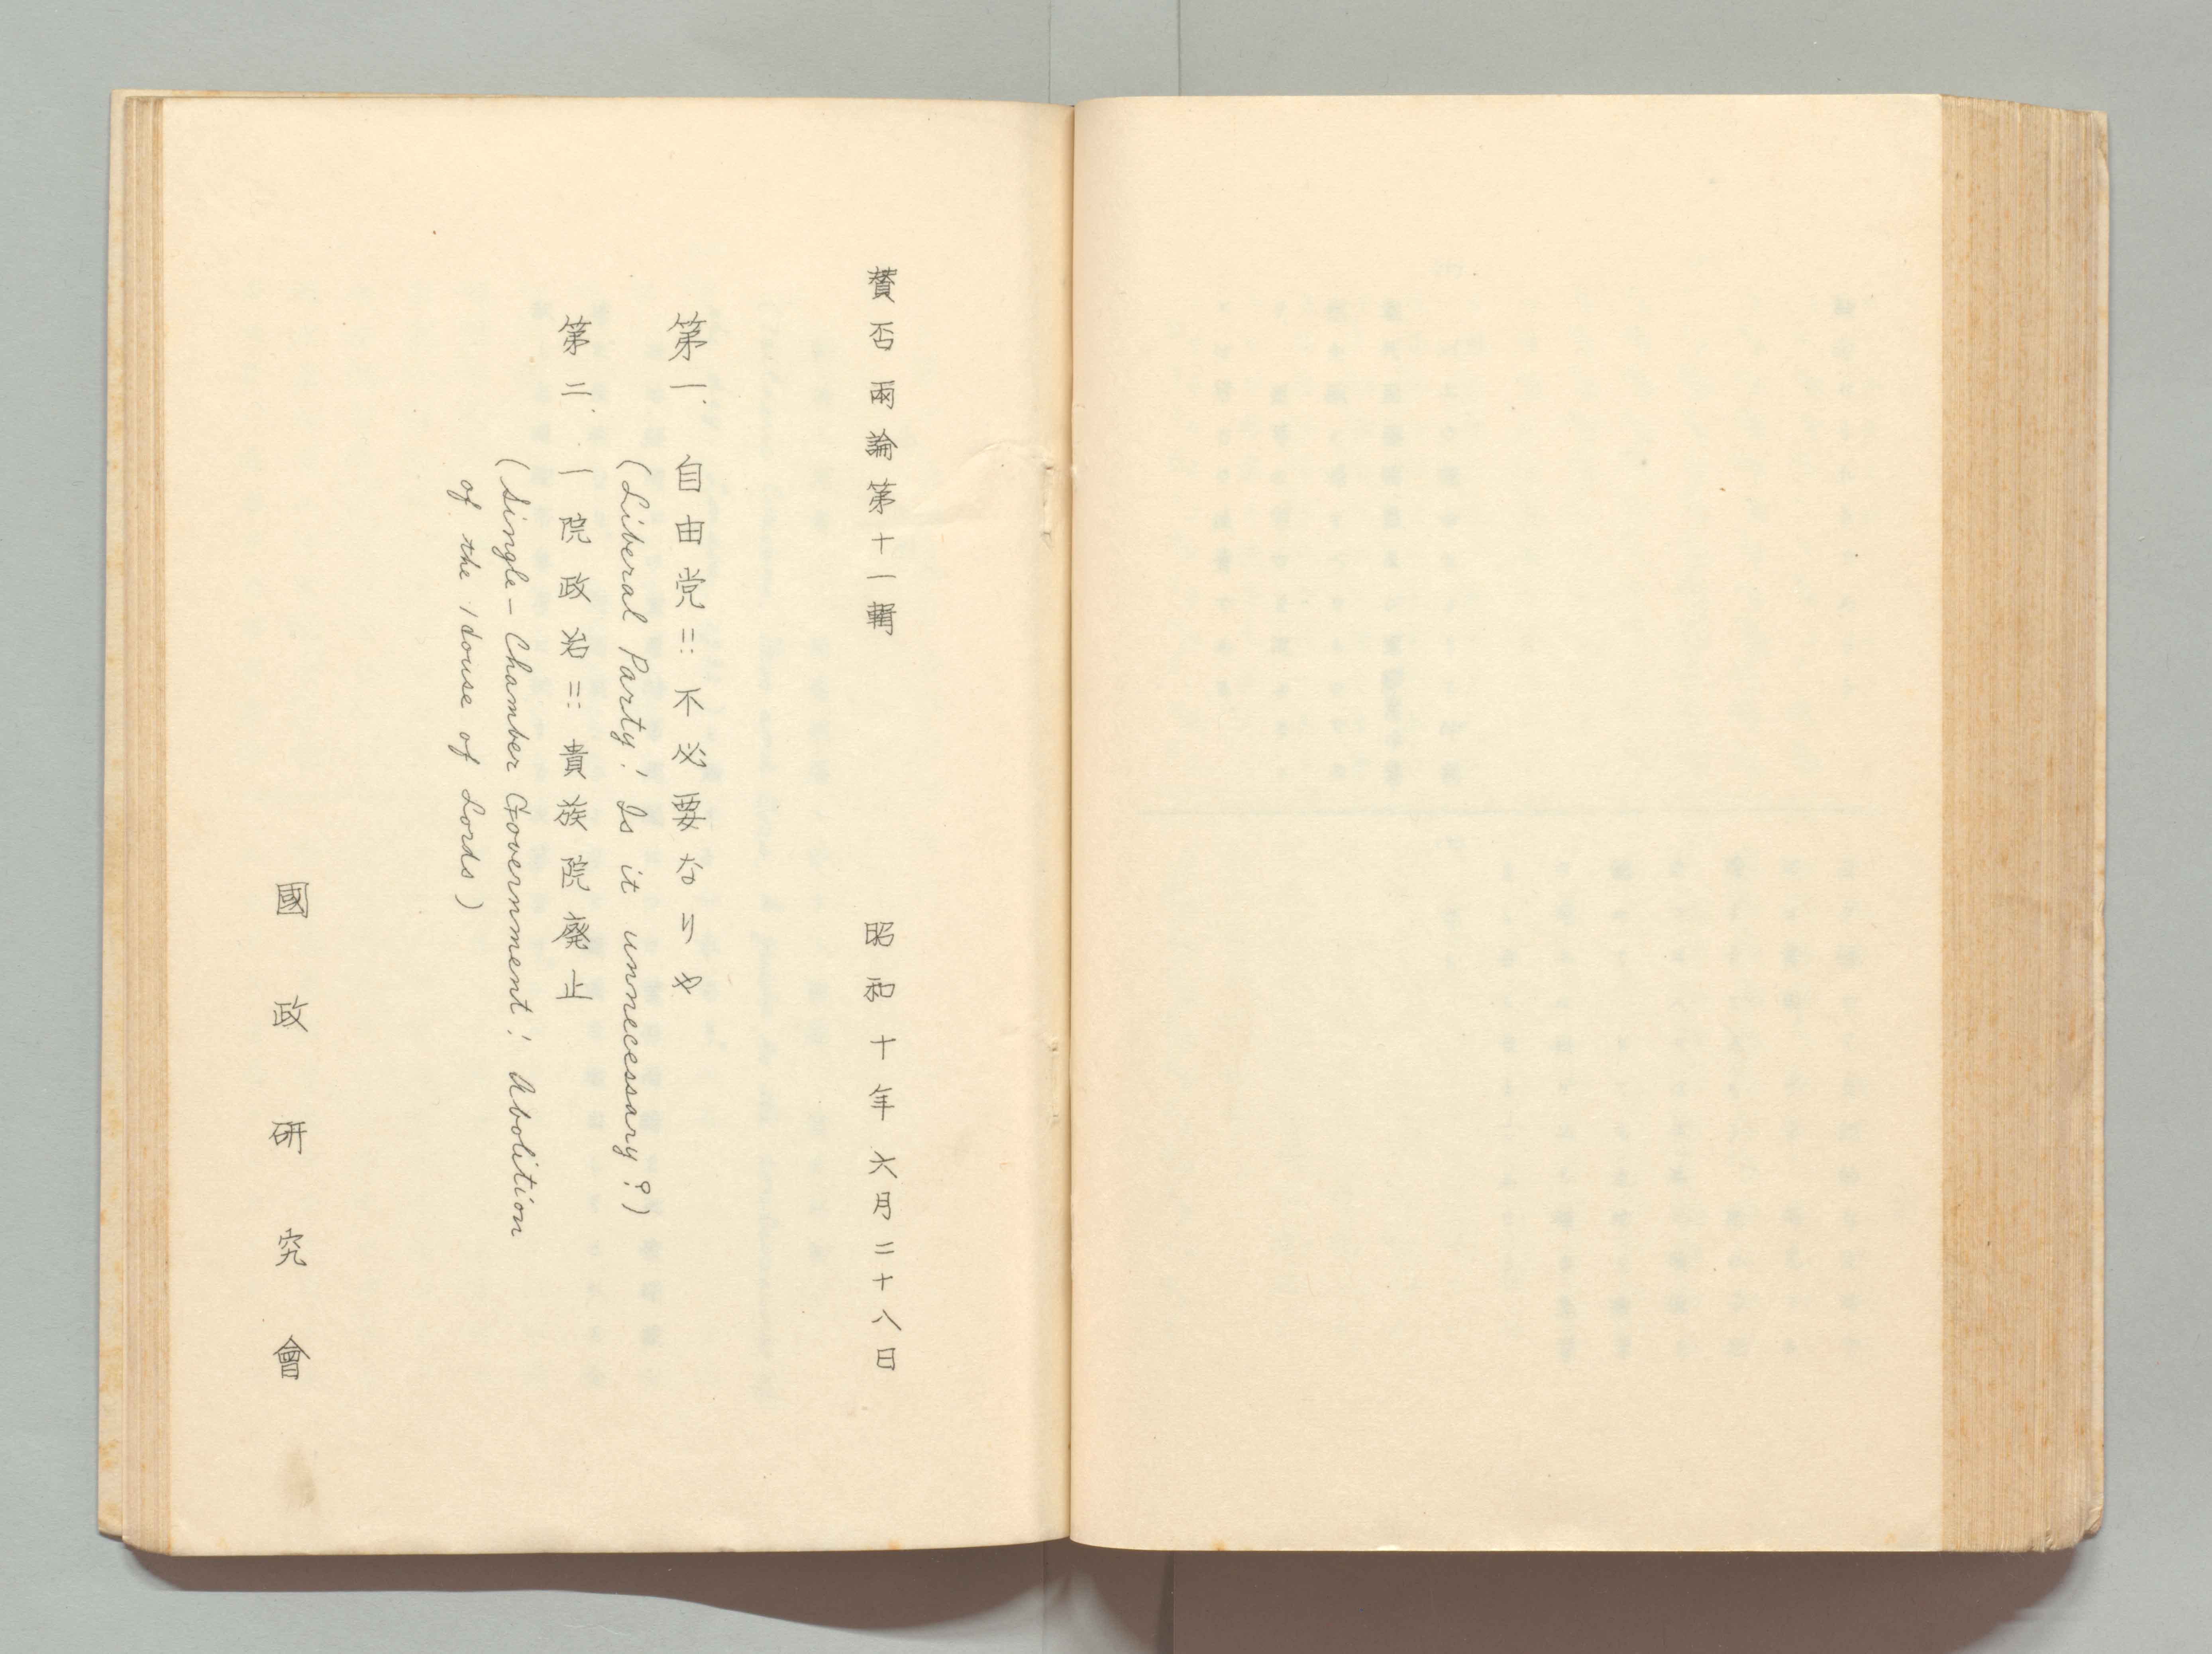 賛否兩論第十一輯
昭和十年六月二十八日
第一. 自由党=:不必要なりや
(Liberal Party! Is it unnecessary?)
第二. 一院政治=:貴族院廃止
(Single-Chamber Government! Abolition
of the House of Lords)
國政研究會